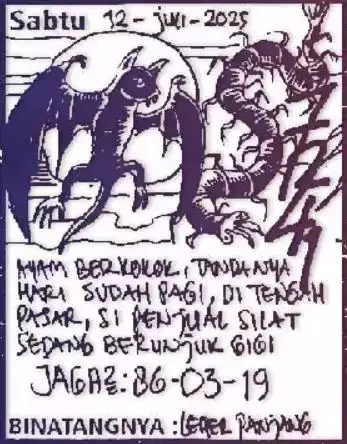 Sabtu 12-juli-2025
AYAM BERKOKOK, TANDANYA
HARI SUDAH PAGI, DI TENGAH
PASAR, SI PENJUAL SILAT
SEDANG BERUNJUK GIGI
JAGA2: 86-03-19
BINATANGNYA: LEHER PANJANG